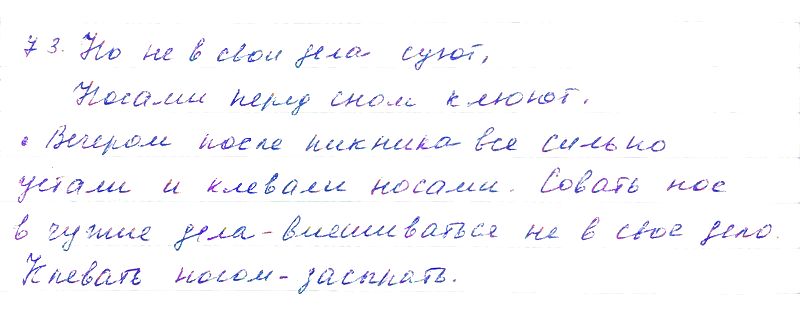 73. Но не в свои дела суют,
Носами перед сном клюют.
Вечером после пикника все сильно
устали и клевали носами. Совать нос
в чужие дела - вмешиваться не в свое дело.
Клевать носом - засыпать.